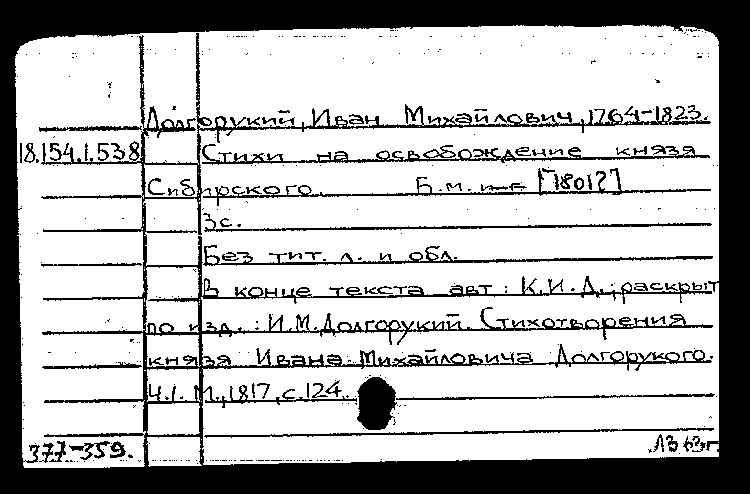 Долгорукий, Иван Михайлович, 1764-1823.
18.154.1.538 Стихи на освобождение князя
Сибирского. Б.м. и г. [1801?]
3с.
Без тит. л. и обл.
В конце текста авт: К.И.Д.; раскрыт
по изд.: И.М.Долгорукий. Стихотворения
князя Ивана Михайловича Долгорукого.
Ч.1. М., 1817, с.124.
377-359. ЛЗ 63г.